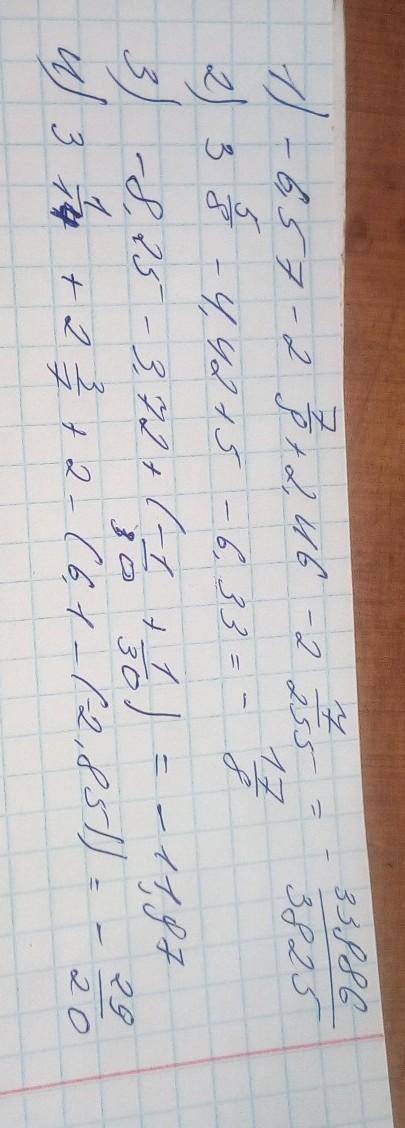 1) -6,57 - 2 7/9 + 2,46 - 2 7/255 = - 33886/3825
2) 3 5/8 - 4,42 + 5 - 6,33 = - 17/8
3) -8,25 - 3,72 + (-1/30 + 1/30) = - 11,97
4) 3 1/14 + 2 3/7 + 2 - (6,1 - (-2,85)) = - 29/20